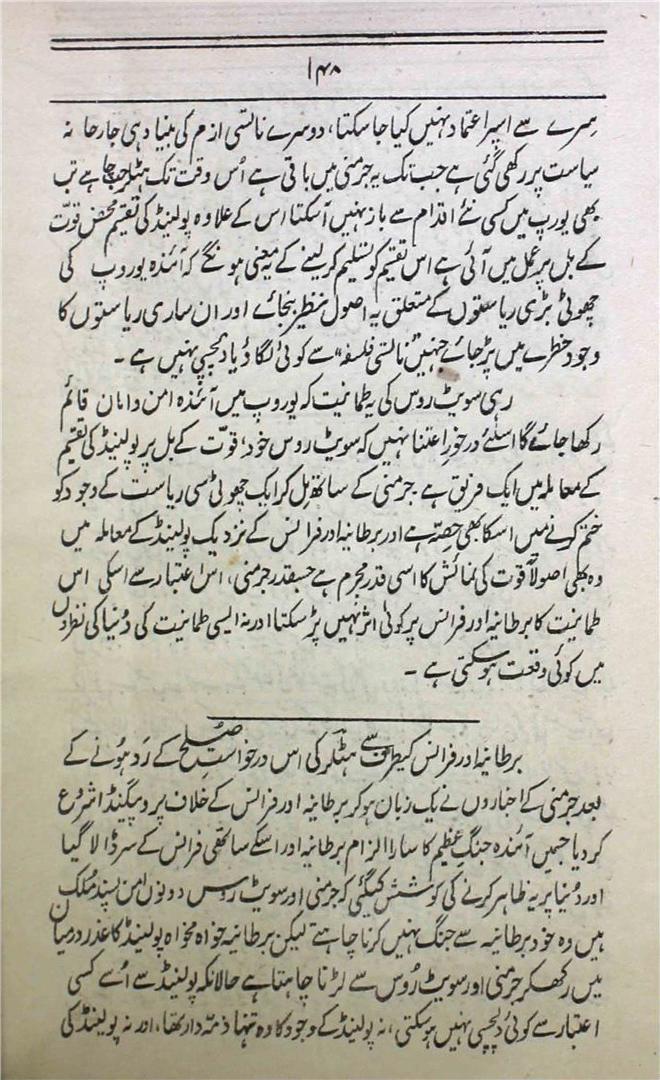 ۱۴۸
سرے سے اسپر اعتماد نہیں کیا جا سکتا، دوسرے ناتسی ازم کی بنیاد ہی جارحانہ
سیاست پر رکھی گئی ہے جب تک یہ جرمنی میں باقی ہے اُس وقت تک ہٹلر چاہے تب
بھی یورپ میں کسی نئے اقدام سے باز نہیں آسکتا اس کے علاوہ پولینڈ کی تقسیم محض قوت
کے بل پر عمل میں آئی ہے اس تقسیم کو تسلیم کر لینے کے یہ معنی ہونگے کہ آئندہ یوروپ کی
چھوٹی بڑی ریاستوں کے متعلق یہ اصول نظیر بنجائے اور ان ساری ریاستوں کا
وجود خطرے میں پڑ جائے جنہیں "ناتسی فلسفہ" سے کوئی لگاؤ یا دلچسپی نہیں ہے ۔
رہی سویٹ روس کی یہ طمانیت کہ یوروپ میں آئندہ امن و امان قائم
رکھا جائے گا اسلئے درخور اعتنا نہیں کہ سویٹ روس خود، قوّت کے بل پر پولینڈ کی تقسیم
کے معاملہ میں ایک فریق ہے۔ جرمنی کے ساتھ مل کر ایک چھوٹی سی ریاست کے وجود کو
ختم کرنے میں اسکا بھی حصّہ ہے اور برطانیہ اور فرانس کے نزدیک پولینڈ کے معاملہ میں
وہ بھی اصولاً قوت کی نمائش کا اسی قدر مجرم ہے جسقدر جرمنی، اس اعتبار سے اسکی اس
طمانیت کا برطانیہ اور فرانس پر کوئی اثر نہیں پڑ سکتا اور نہ ایسی طمانیت کی دُنیا کی نظروں
میں کوئی وقعت ہو سکتی ہے ۔
برطانیہ اور فرانس کیطرف سے ہٹلر کی اس درخواستِ صُلح کے رَد ہونے کے
بعد جرمنی کے اخباروں نے یک زبان ہو کر برطانیہ اور فرانس کے خلاف پروپیگنیڈا شروع
کر دیا جسمیں آئندہ جنگ عظیم کا سارا الزام برطانیہ اور اسکے ساتھی فرانس کے سر ڈالا گیا
اور دُنیا پر یہ ظاہر کرنے کی کوشش کیگئی کہ جرمنی اور سویٹ روس دونوں امن پسند مُلک
ہیں وہ خود برطانیہ سے جنگ نہیں کرنا چاہتے لیکن برطانیہ خواہ مخواہ پولینڈ کا عذر درمیان
میں رکھکر جرمنی اور سویٹ رُوس سے لڑنا چاہتا ہے حالانکہ پولینڈ سے اُسے کسی
اعتبار سے کوئی دلچسپی نہیں ہو سکتی، نہ پولینڈ کے وجود کا وہ تنہا ذمّہ دار تھا، اور نہ پولینڈ کی